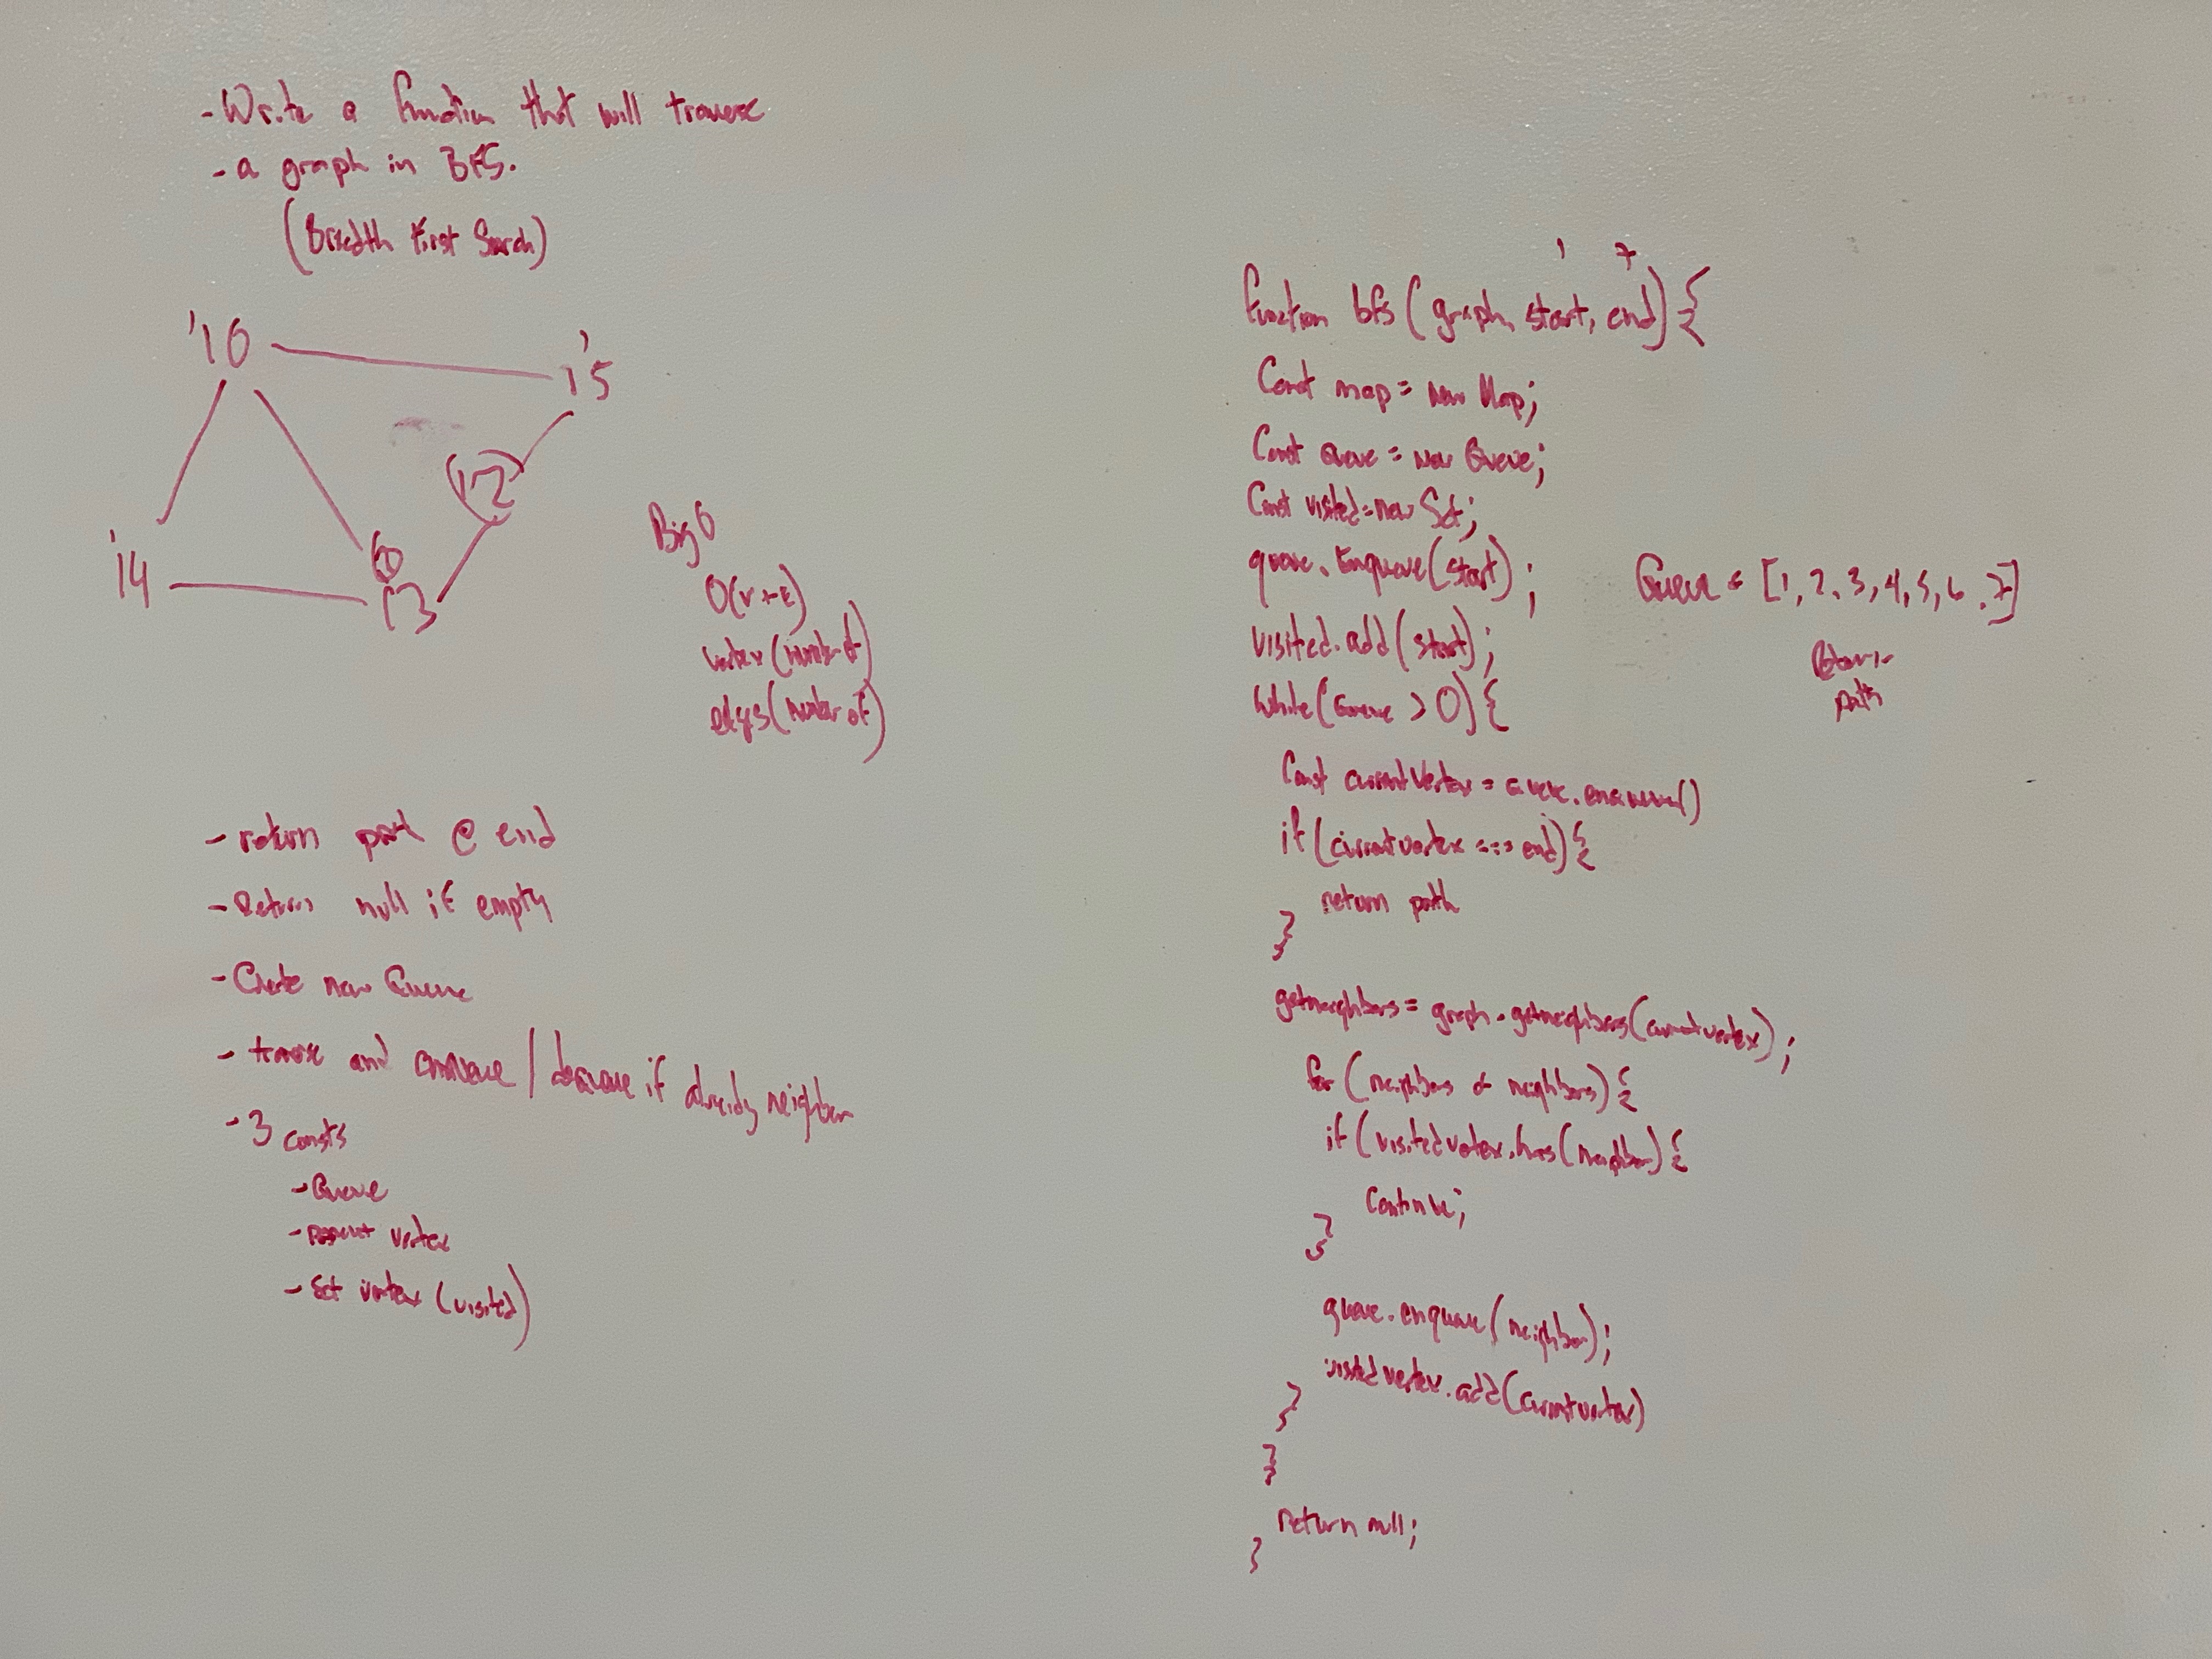 - Write a function that will traverse
- a graph in BFS.
(Breadth First Search)
'10
15
(12)
'14
13
Big O
O(v+E)
vertex (number of)
edges (number of)
- return path @ end
- Return null if empty
- Create new Queue
- traverse and enqueue / dequeue if already neighbor
- 3 consts
- Queue
- vertex
- Set vertex (visited)
1 7
function bfs (graph, start, end) {
Const map = new Map;
Const Queue = new Queue;
Const visited = new Set;
queue.Enqueue(start);
visited.add(start);
While (Queue > 0) {
Const currentVertex = queue.enqueue()
if (currentvertex === end) {
return path
}
getneighbors = graph.getneighbors(currentvertex);
for (neighbors of neighbors) {
if (visitedvertex.has(neighbor) {
Continue;
}
queue.enqueue(neighbor);
visitedvertex.add(currentvertex)
}
}
return null;
}
Queue = [1, 2, 3, 4, 5, 6, 7]
Return
path